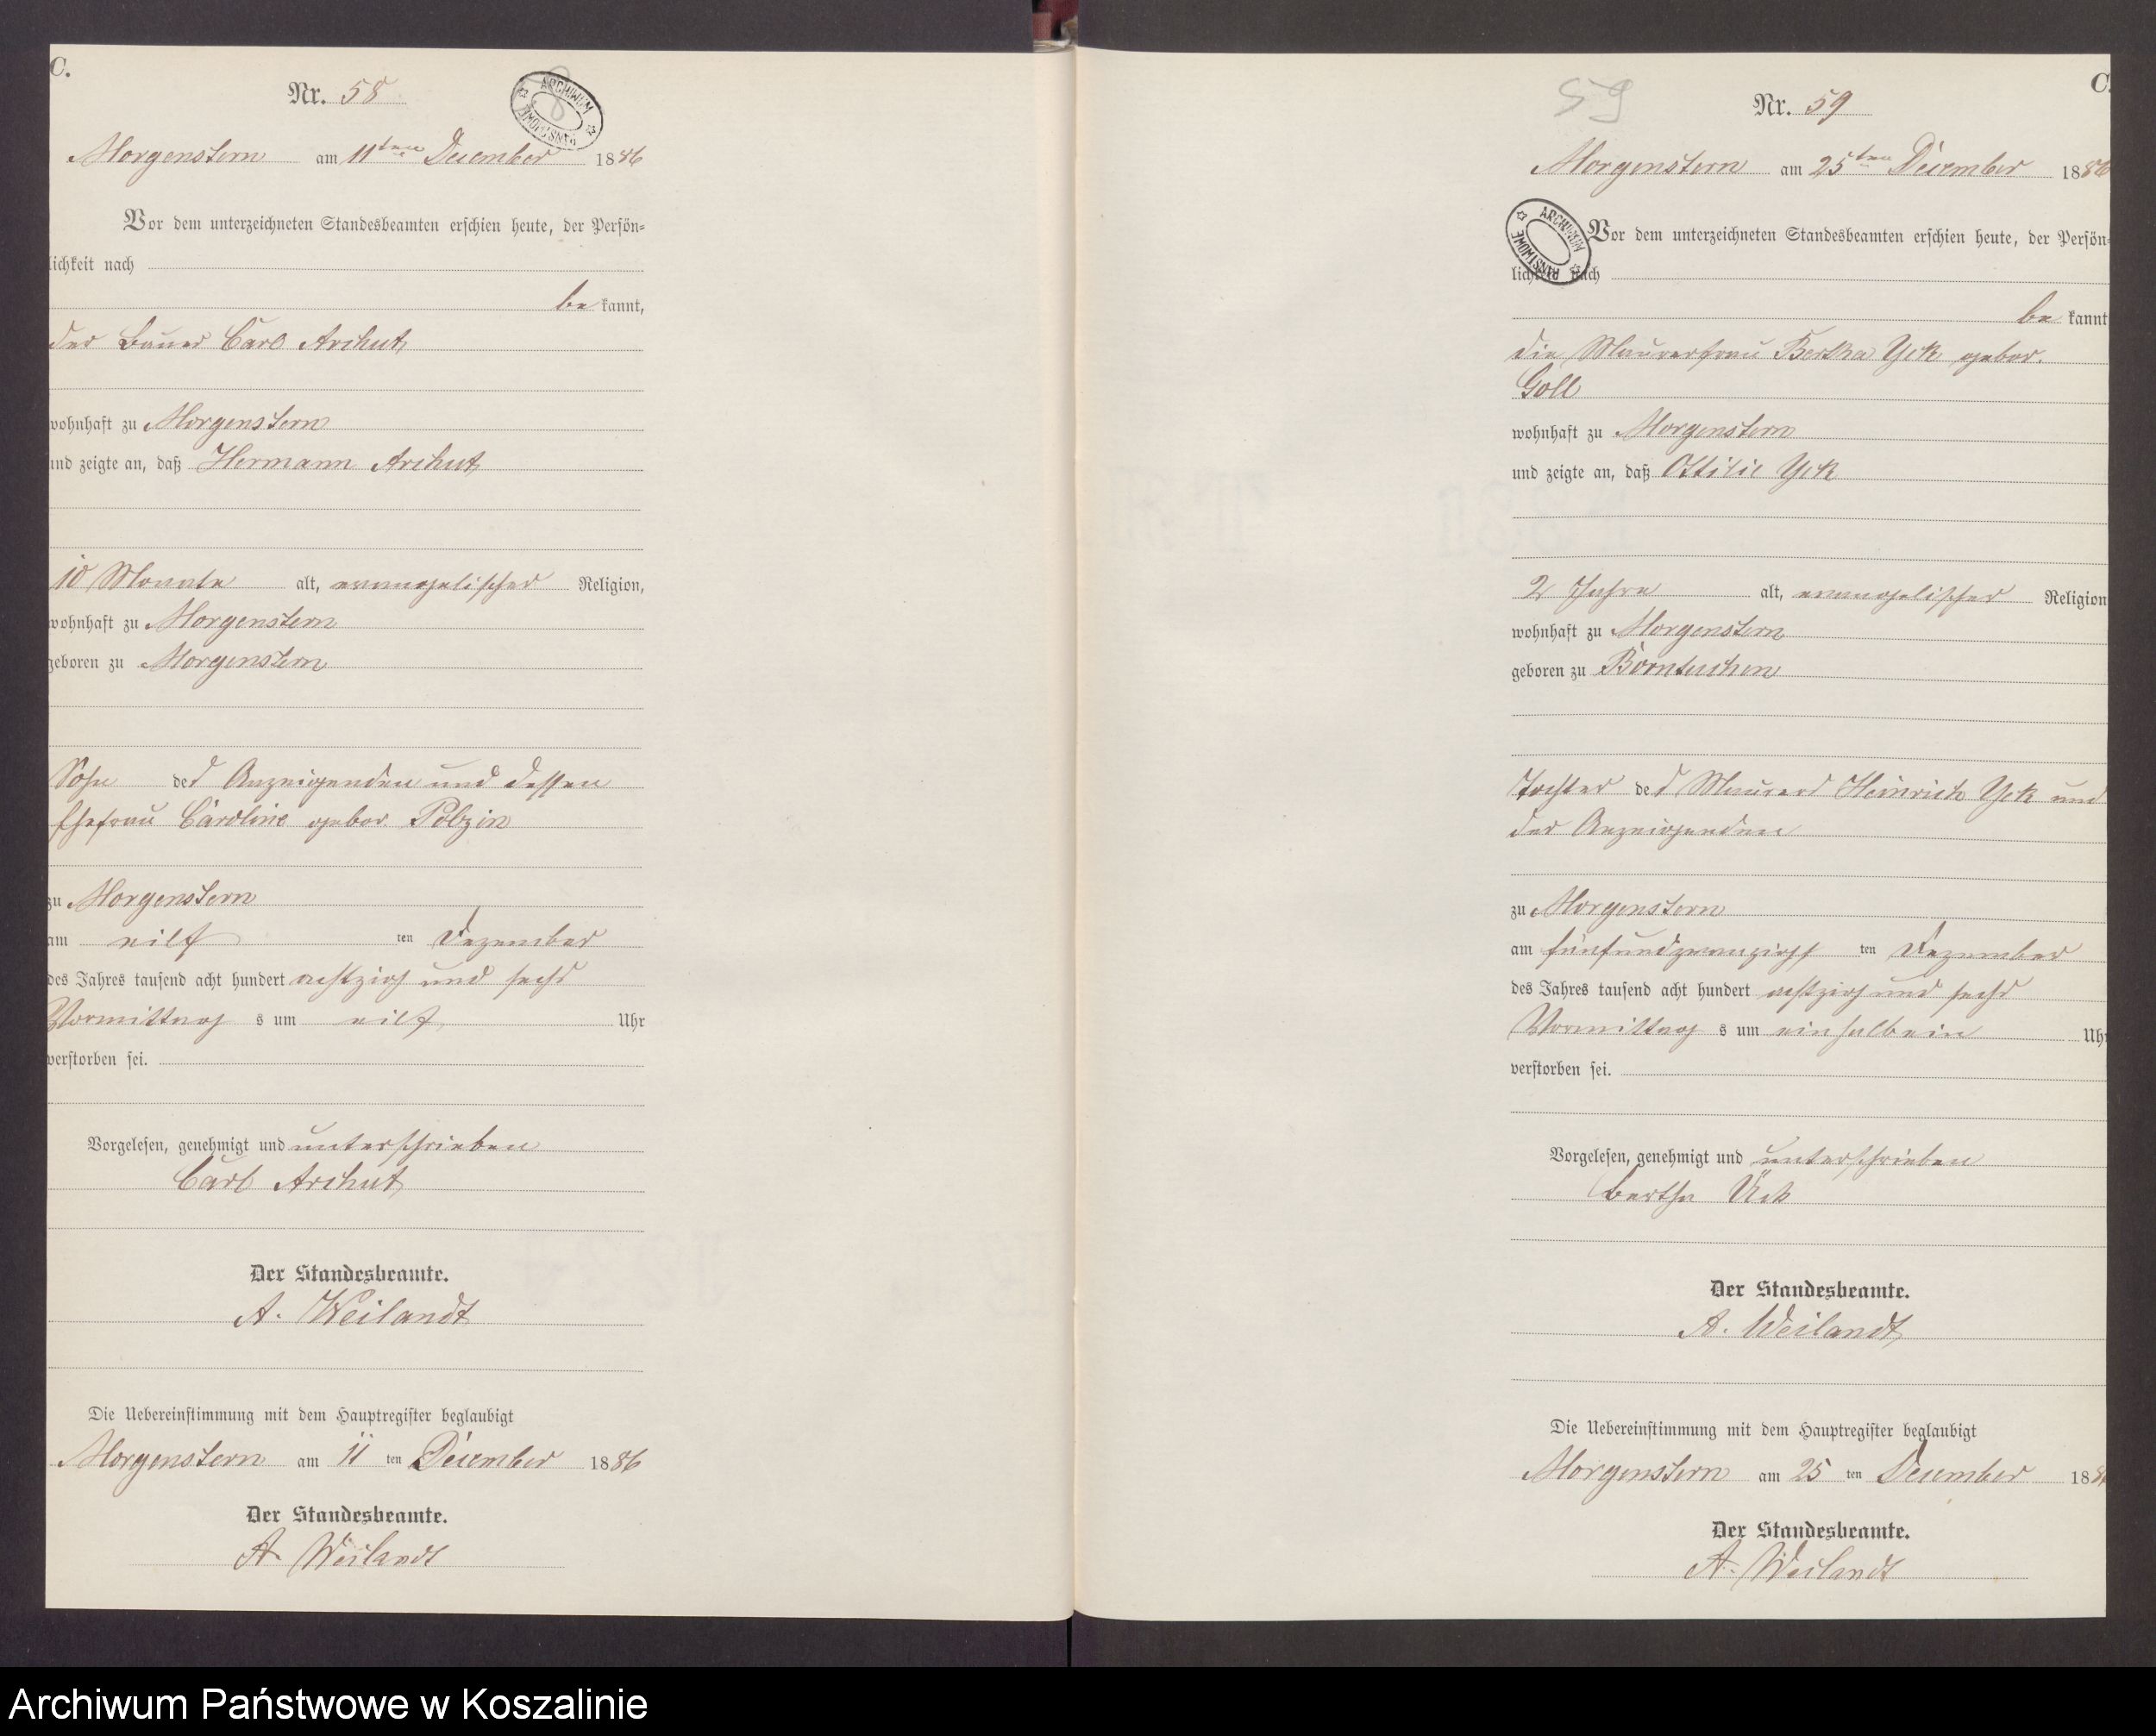 C.
Nr. 58
ARCHIWUM PAŃSTWOWE
Morgenstern am 11ten December 1886
Vor dem unterzeichneten Standesbeamten erschien heute, der Persön-
lichkeit nach
be kannt,
der Bauer Carl Archut,
wohnhaft zu Morgenstern
und zeigte an, daß Hermann Archut,
10 Monate alt, evangelischer Religion,
wohnhaft zu Morgenstern
geboren zu Morgenstern
Sohn des Anzeigenden und dessen
Ehefrau Caroline gebor. Polzin
zu Morgenstern
am eilf ten Dezember
des Jahres tausend acht hundert achtzig und sechs
Vormittag s um eilf Uhr
verstorben sei.
Vorgelesen, genehmigt und unterschrieben
Carl Archut
Der Standesbeamte.
A. Weilandt
Die Uebereinstimmung mit dem Hauptregister beglaubigt
Morgenstern am 11 ten December 1886
Der Standesbeamte.
A. Weilandt
59
C.
Nr. 59
Morgenstern am 25ten December 1886
ARCHIWUM PAŃSTWOWE
Vor dem unterzeichneten Standesbeamten erschien heute, der Persön-
lichkeit nach
be kannt
die Maurerfrau Bertha Yck gebor.
Göll
wohnhaft zu Morgenstern
und zeigte an, daß Ottilie Yck
2 Jahre alt, evangelischer Religion
wohnhaft zu Morgenstern
geboren zu Borntuchen
Tochter des Maurers Heinrich Yck und
der Anzeigenden
zu Morgenstern
am fünfundzwanzigst ten Dezember
des Jahres tausend acht hundert achtzig und sechs
Vormittag s um ein halb ein Uhr
verstorben sei.
Vorgelesen, genehmigt und unterschrieben
Bertha Ück
Der Standesbeamte.
A. Weilandt
Die Uebereinstimmung mit dem Hauptregister beglaubigt
Morgenstern am 25 ten December 188
Der Standesbeamte.
A. Weilandt
Archiwum Państwowe w Koszalinie